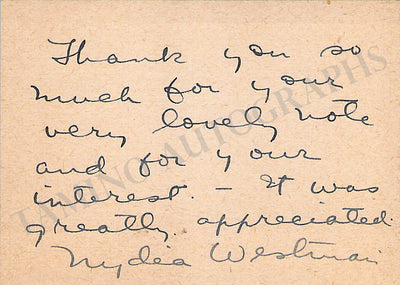 Thank you so
much for your
very lovely note
and for your
interest. — It was
greatly appreciated.
Nydia Westman
TAMINO AUTOGRAPHS